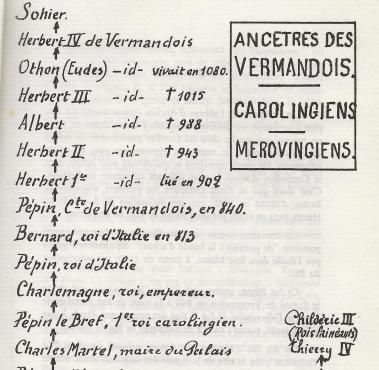 Sohier.
Herbert IV de Vermandois
Othon (Eudes) -id- vivait en 1080.
Herbert III -id- † 1015
Albert -id- † 988
Herbert II -id- † 943
Herbert 1er -id- tué en 902
Pépin, Cte de Vermandois, en 840.
Bernard, roi d'Italie en 813
Pépin, roi d'Italie
Charlemagne, roi, empereur.
Pépin le Bref, 1er roi carolingien.
Charles Martel, maire du Palais
ANCETRES DES
VERMANDOIS.
CAROLINGIENS
MEROVINGIENS.
Childéric III
(Rois fainéants)
Thierry IV